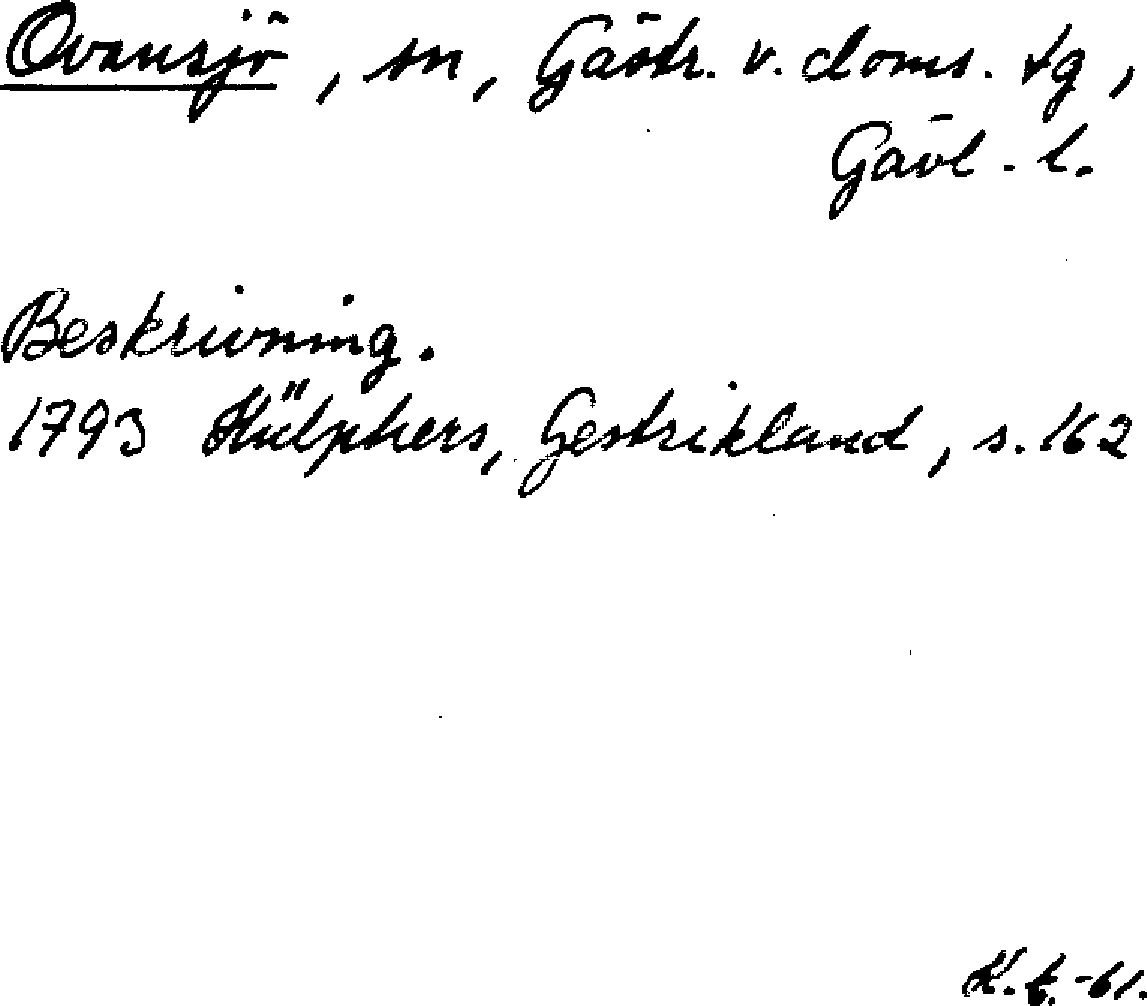 Ovansjö, sn, Gästr. v. doms. tg,
Gävl. l.
Beskrivning.
1793 Hülphers, Gestrikland, s. 162
K. t. -61.